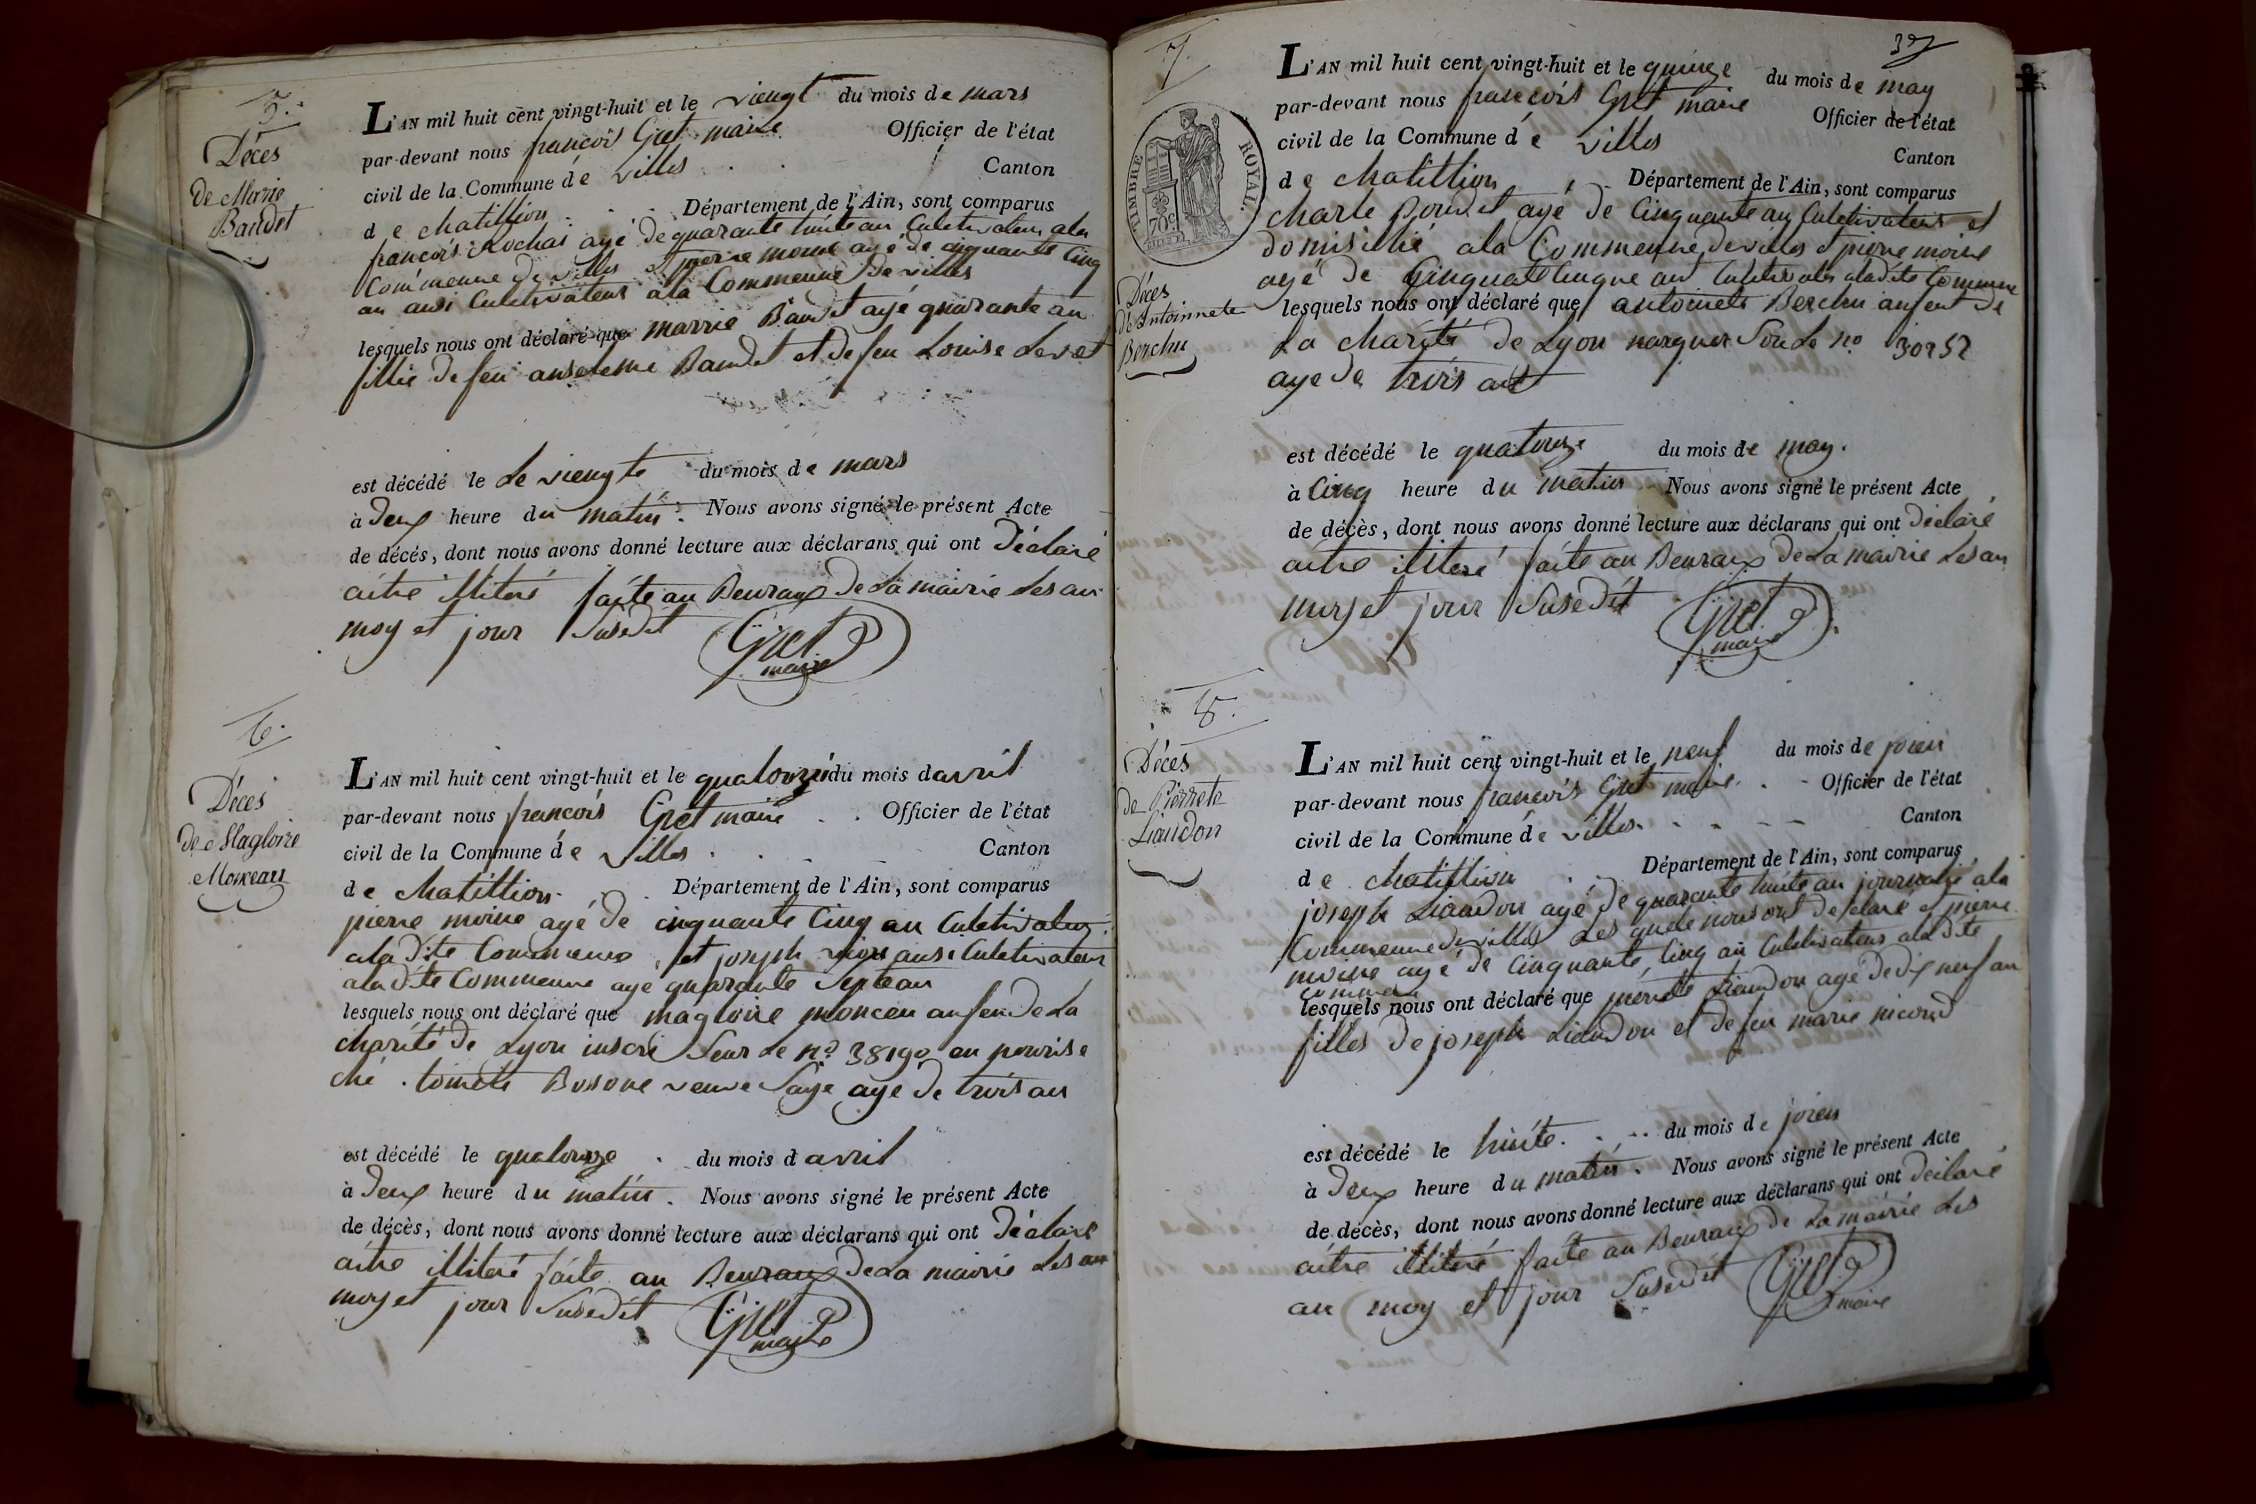 5.
Déces
de Marie
Baudet
L'AN mil huit cent vingt-huit et le viengt du mois de mars
par-devant nous francois Gret maire Officier de l'état
civil de la Commune de villes Canton
de chatillion Département de l'Ain, sont comparus
francois Rochai ayé de quarante huite an Culetivateur ala
Commenne de villes et pierre moine ayé de cinquante Cinq
an ausi Culetivateur ala Commenne de villes
lesquels nous ont déclaré que marrie Baudet ayé quarante an
fillie de feu anselme Baudet et de feu Louise Levet
est décédé le Le viengte du mois de mars
à deux heure du matin. Nous avons signé le présent Acte
de décès, dont nous avons donné lecture aux déclarans qui ont Déclaré
aitre illiteré faite au Beuraux de La mairie Les an
moy et jour Susedit
Gret
maire
6.
Déces
de Magloire
Monceau
L'AN mil huit cent vingt-huit et le quatourze du mois d avril
par-devant nous francois Gret maire Officier de l'état
civil de la Commune de villes Canton
de chatillion Département de l'Ain, sont comparus
pierre moine ayé de cinquante Cinq an Culetivateur
aladite Commenne et joseph ausi Culetivateur
aladite Commenne ayé quarante Septe an
lesquels nous ont déclaré que magloire monceu anfen de La
charité de Lyon inscri Seur Le no 38190 en pouris e
ché tomete Bossone veuve Saye ayé de trois an
est décédé le quatourze du mois d avril
à deux heure du matin. Nous avons signé le présent Acte
de décès, dont nous avons donné lecture aux déclarans qui ont Déclaré
aitre illiteré faite au Beuraux de La mairie Les an
moy et jour Susedit
Gret
maire
37
7.
TIMBRE ROYAL.
70c
Déces
de Antoinnete
Berchu
L'AN mil huit cent vingt-huit et le quinze du mois de may
par-devant nous francois Gret maire Officier de l'état
civil de la Commune de villes Canton
de chatillion Département de l'Ain, sont comparus
charle ayé de Cinquante an Culetivateur et
domisilié ala Commenne de villes et pierre moine
ayé de Cinquate Cinque an Culetivater aladite Commune
lesquels nous ont déclaré que antoinete Berchu anfent de
La charité de Lyon marquer Sou Le no 30252
aye de trois ant
est décédé le quatourze du mois de may.
à Cinq heure du matin Nous avons signé le présent Acte
de décès, dont nous avons donné lecture aux déclarans qui ont Déclaré
aitre illiteré faite au Beuraux de La mairie Les an
moy et jour Susedit
Gret
maire
8.
Déces
de Pierrete
Liaudon
L'AN mil huit cent vingt-huit et le neuf du mois de joien
par-devant nous francois Gret maire Officier de l'état
civil de la Commune de villes Canton
de chatillion Département de l'Ain, sont comparus
joseph Liaudon ayé de quarante huite an journalié ala
Commenne de villes Les quele nous ont deselaré et pierre
moine ayé de Cinquante Cinq an Culetivateur aladite
Commen
lesquels nous ont déclaré que pierrete Liaudon ayé de dix neuf an
filles de joseph Liaudon et de feu marie nicoud
est décédé le huite du mois de joien
à deux heure du matin. Nous avons signé le présent Acte
de décès, dont nous avons donné lecture aux déclarans qui ont déclaré
aitre illiteré faite au Beuraux de La mairie Les
an moy et jour Susedit
Gret
maire